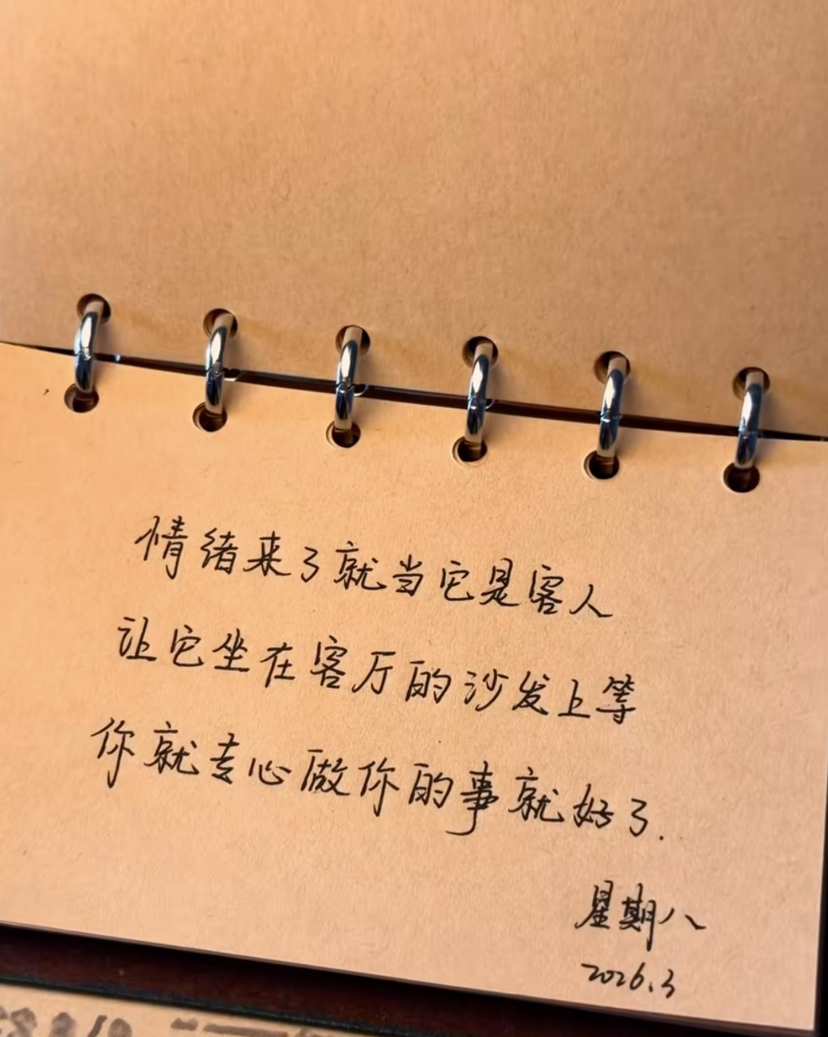 情绪来了就当它是客人
让它坐在客厅的沙发上等
你就专心做你的事就好了.
星期八
2026.3